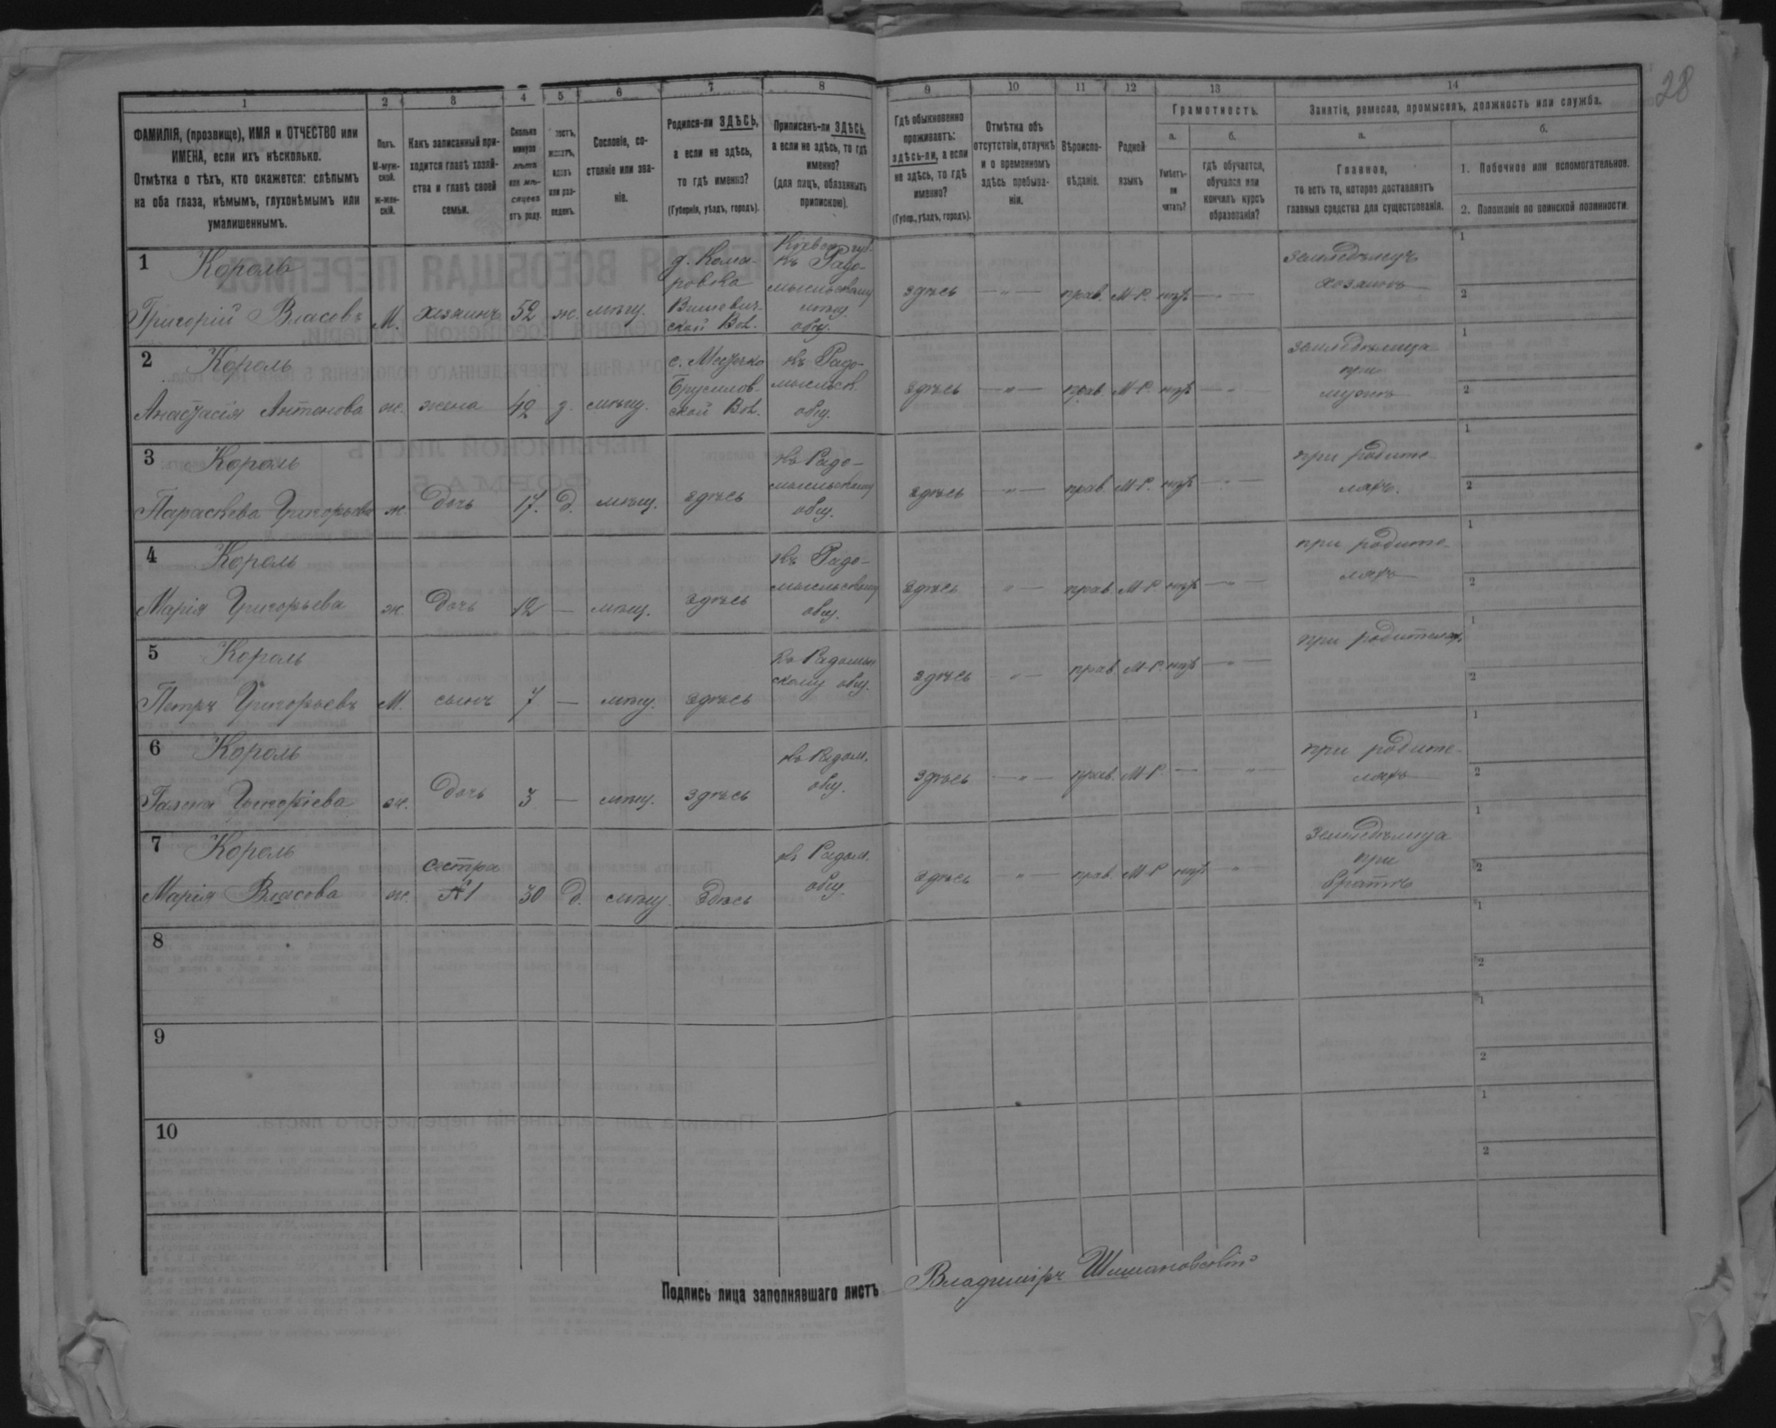 28
1 2 3 4 5 6 7 8 9 10 11 12 13 14
ФАМИЛІЯ, (прозвище), ИМЯ и ОТЧЕСТВО или
ИМЕНА, если ихъ нѣсколько.
Отмѣтка о тѣхъ, кто окажется: слѣпымъ
на оба глаза, нѣмымъ, глухонѣмымъ или
умалишеннымъ.
Полъ.
М-муж-
ской.
ж-жен-
скій.
Какъ записанный при-
ходится главѣ хозяй-
ства и главѣ своей
семьи.
Сколько
минуло
лѣтъ
или мѣ-
сяцевъ
отъ роду.
Сословіе, со-
стояніе или зва-
ніе.
Родился-ли ЗДѢСЬ,
а если не здѣсь,
то гдѣ именно?
(Губернія, уѣздъ, городъ).
Приписанъ-ли ЗДѢСЬ,
а если не здѣсь, то гдѣ
именно?
(для лицъ, обязанныхъ
припискою).
Гдѣ обыкновенно
проживаетъ:
здѣсь-ли, а если
не здѣсь, то гдѣ
именно?
(Губер., уѣздъ, городъ).
Отмѣтка объ
отсутствіи, отлучкѣ
и о временномъ
здѣсь пребыва-
ніи.
Вѣроиспо-
вѣданіе.
Родной
языкъ
Грамотность.
а.
Умѣетъ-
ли
читать?
б.
гдѣ обучается,
обучался или
кончилъ курсъ
образованія?
Занятіе, ремесло, промыселъ, должность или служба.
а.
Главное,
то есть то, которое доставляетъ
главныя средства для существованія.
б.
1. Побочное или вспомогательное.
2. Положеніе по воинской повинности.
1 Король
Григорій Власовъ М. хозяинъ 52 ж. мѣщ.
д. Кома-
ровка
ской Вол.
Кіевск. губ.
къ Радо-
мысльскому
мѣщ.
общ.
здѣсь — " — прав. М-Р. нѣтъ — " —
земледѣлецъ
хозяинъ
1
2
2 Король
Анастасія Антонова ж. жена 42 з. мѣщ.
Брусилов-
ской Вол.
къ Радо-
мысльск.
общ.
здѣсь — " — прав. М-Р. нѣтъ — " —
земледѣлица
при
мужѣ
1
2
3 Король
Параскева Григорьева ж. Дочь 17. Д. мѣщ. здѣсь
къ Радо-
мысльскому
общ.
здѣсь — " — прав. М-Р. нѣтъ — " —
при родите-
ляхъ.
1
2
4 Король
Марія Григорьева ж Дочь 12 — мѣщ. здѣсь
къ Радо-
мысльскому
общ.
здѣсь " — прав. М-Р нѣтъ — " —
при родите-
ляхъ
1
2
5 Король
Петръ Григорьевъ М. сынъ 7 — мѣщ. здѣсь
къ Радомысль-
скому общ.
здѣсь — " — прав. М-Р. нѣтъ — " —
при родителяхъ
1
2
6 Король
Григоріева ж. Дочь 3 — мѣщ. здѣсь
къ Радом.
общ.
здѣсь — " — прав. М-Р — — " —
при родите-
ляхъ
1
2
7 Король
Марія Власова ж.
сестра
№1
30 Д. мѣщ. Здѣсь
къ Радом.
общ.
здѣсь — " — прав. М-Р нѣтъ — " —
земледѣлица
при
братѣ
1
2
8
1
2
9
1
2
10
1
2
Подпись лица заполнявшаго листъ Владиміръ Шимановскій